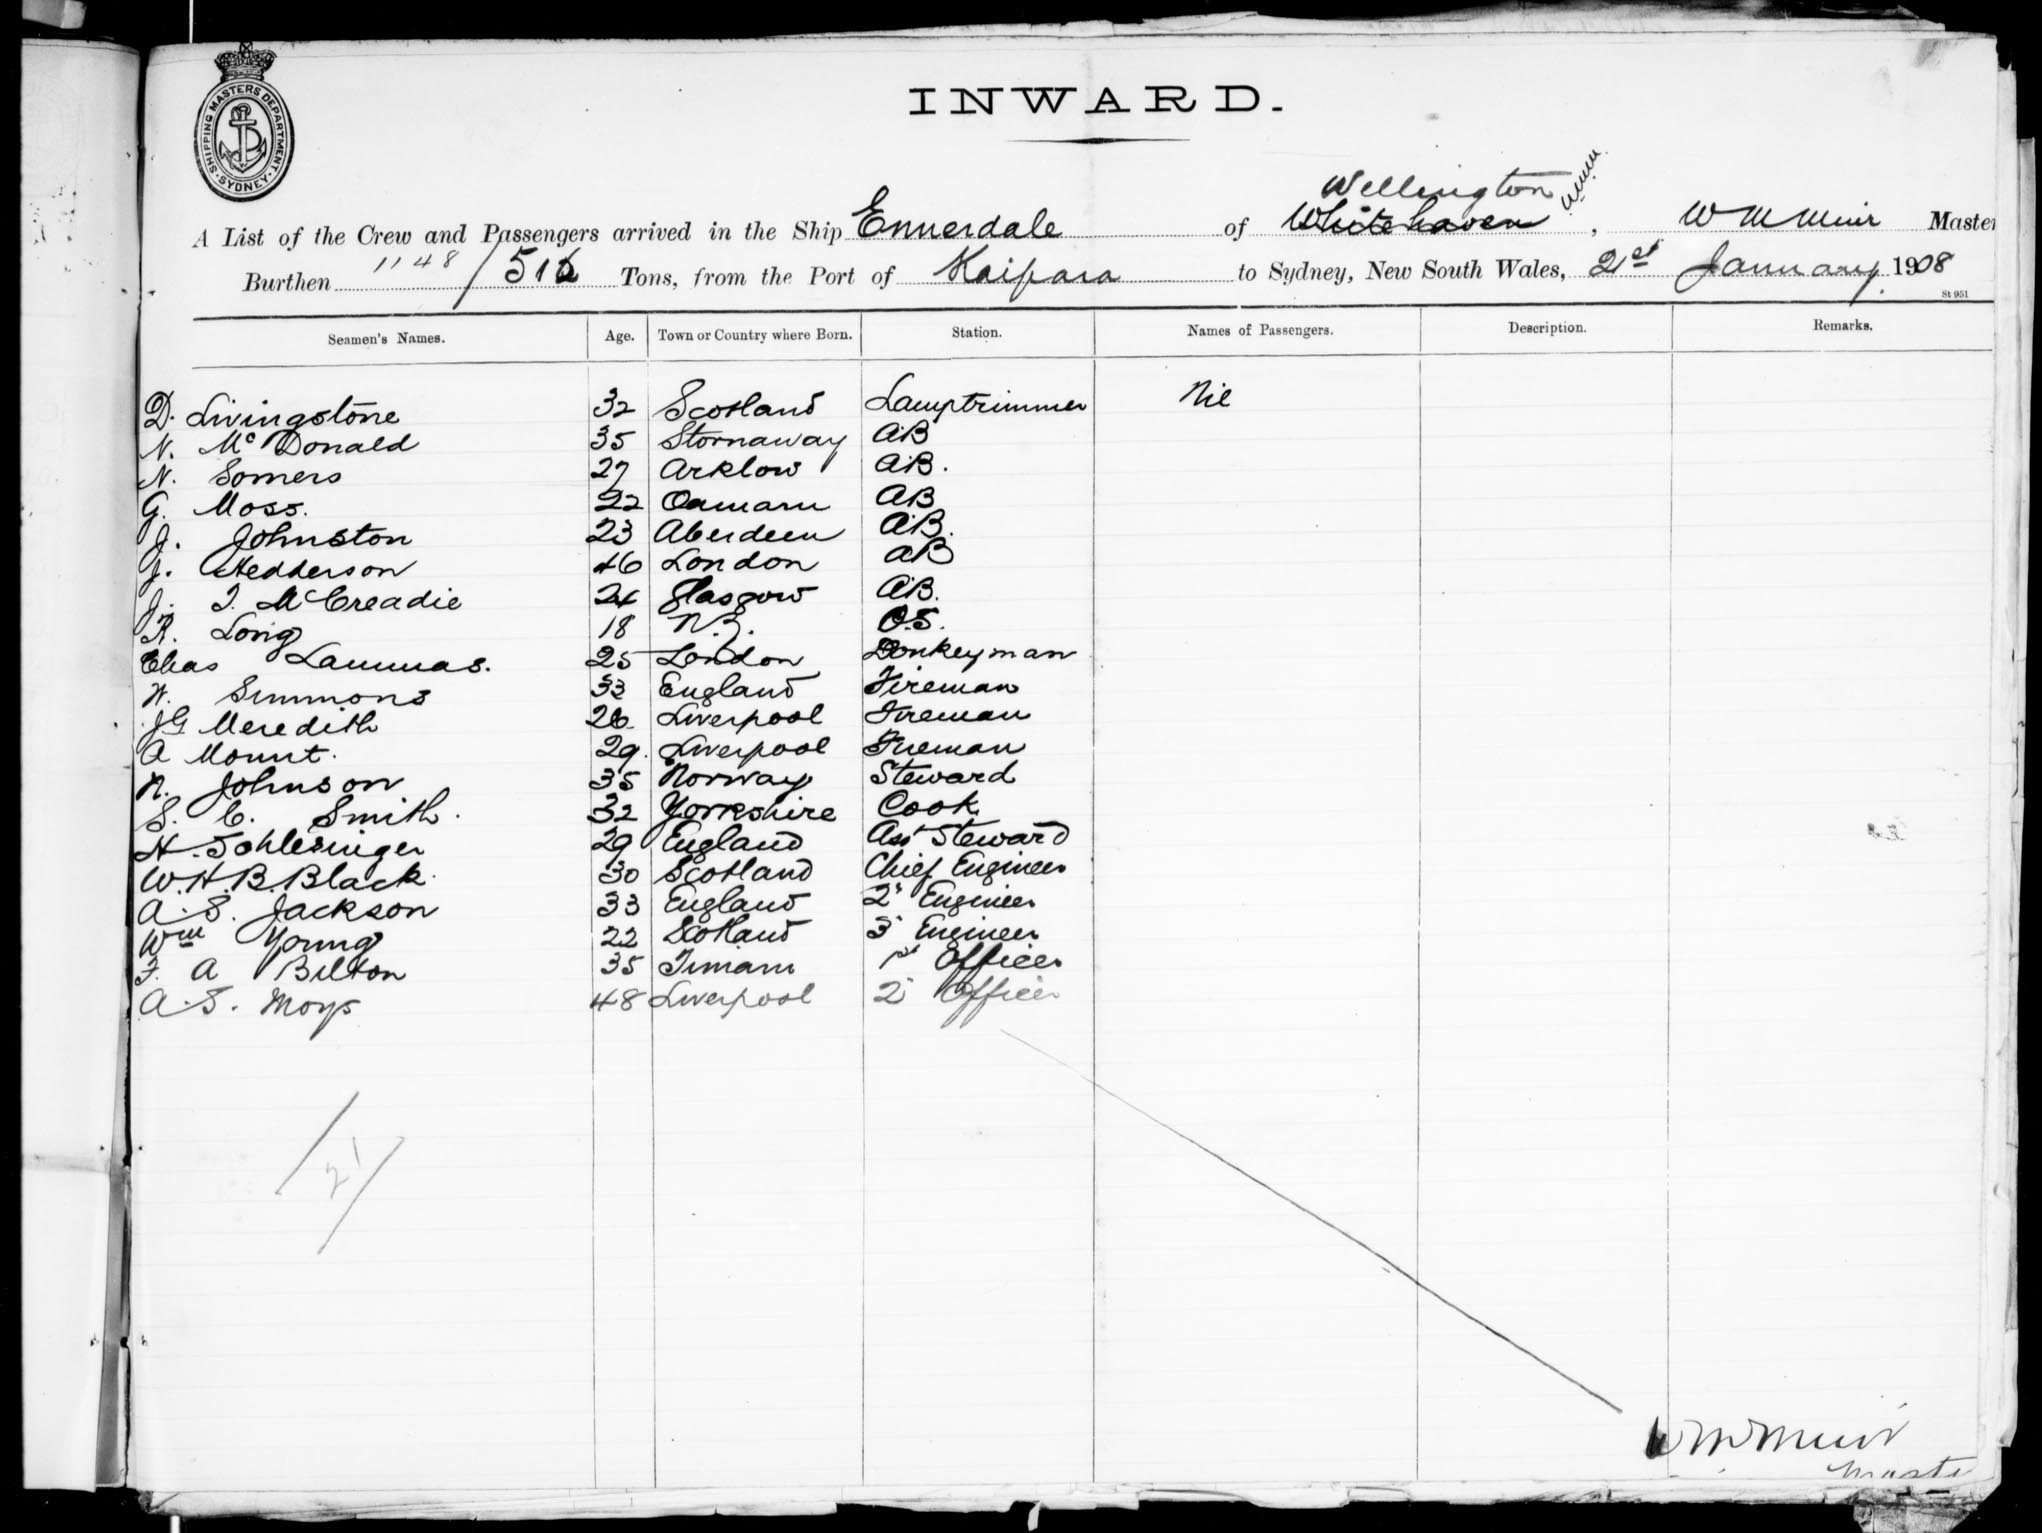 SHIPPING MASTERS DEPARTMENT. SYDNEY.
INWARD.
Wellington
A List of the Crew and Passengers arrived in the Ship Ennerdale of Whitehaven, W M Muir Master
Burthen 1148/516 Tons, from the Port of Kaipara to Sydney, New South Wales, 21st January 1908
St 951
Seamen's Names. Age. Town or Country where Born. Station. Names of Passengers. Description. Remarks.
D. Livingstone 32 Scotland Lamptrimmer Nil
N. McDonald 35 Stornaway AB
N. Somers 27 Arklow AB.
G. Moss. 22 Oamaru AB
J. Johnston 23 Aberdeen AB.
J. Hedderson 46 London AB
J. T. McCreadie 24 Glasgow AB.
R. Long 18 N.Z. O.S.
Chas Lammas. 25 London Donkeyman
W. Simmons 33 England Fireman
J G Meredith 26 Liverpool Fireman
A Mount. 29. Liverpool Fireman
N. Johnson 35 Norway Steward
S. C. Smith. 32 Yorkshire Cook
H. Schlesinger 29 England Asst Steward
W. H. B. Black. 30 Scotland Chief Engineer
A. S. Jackson 33 England 2 Engineer
Wm Young 22 Scotland 3 Engineer
F. A Bilton 35 Timaru 1st Officer
A. S. Moys 48 Liverpool 2 Officer
21
W M Muir
Maste